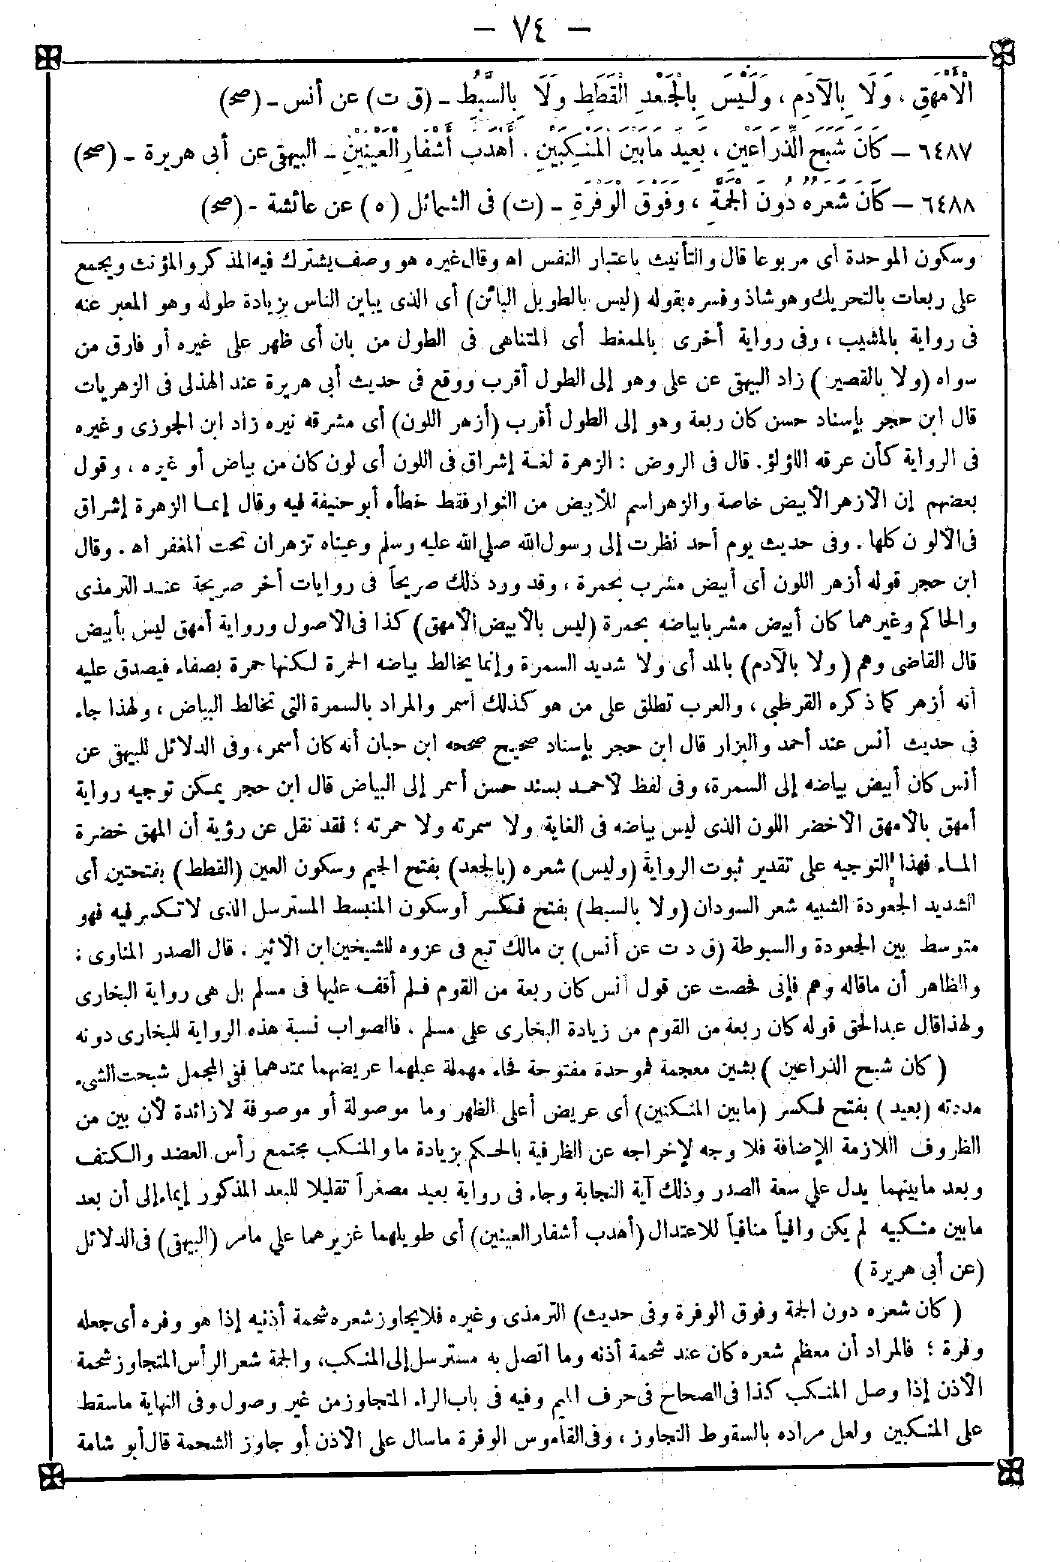 — ٧٤ —
الْأَمْهَقِ ، وَلَا بِالآدَمِ ، وَلَيْسَ بِالْجَعْدِ الْقَطَطِ وَلَا بِالسَّبْطِ - (ق ت) عن أنس - (صح)
٦٤٨٧ - كَانَ شَبْحَ الذِّرَاعَيْنِ ، بَعِيدَ مَابَيْنَ الْمَنْكِبَيْنِ ، أَهْدَبَ أَشْفَارِ الْعَيْنَيْنِ - البيهقى عن أبى هريرة - (صح)
٦٤٨٨ - كَانَ شَعَرُهُ دُونَ الْجُمَّةِ ، وَفَوْقَ الْوَفْرَةِ - (ت) فى الشمائل (ه) عن عائشة - (صح)
وسكون الموحدة أى مربوعا قال والتأنيث باعتبار النفس اه وقال غيره هو وصف يشترك فيه المذكر والمؤنث ويجمع
على ربعات بالتحريك وهو شاذ وفسره بقوله (ليس بالطويل البائن) أى الذى يباين الناس بزيادة طوله وهو المعبر عنه
فى رواية بالمشيب ، وفى رواية أخرى بالممغط أى المتناهى فى الطول من بان أى ظهر على غيره أو فارق من
سواه (ولا بالقصير) زاد البيهقى عن على وهو إلى الطول أقرب ووقع فى حديث أبى هريرة عند الهذلى فى الزهريات
قال ابن حجر بإسناد حسن كان ربعة وهو إلى الطول أقرب (أزهر اللون) أى مشرقه نيره زاد ابن الجوزى وغيره
فى الرواية كأن عرقه اللؤلؤ. قال فى الروض : الزهرة لغة إشراق فى اللون أى لون كان من بياض أو غيره ، وقول
بعضهم إن الأزهر الأبيض خاصة والزهر اسم للأبيض من النوار فقط خطأه أبو حنيفة فيه وقال إنما الزهرة إشراق
فى الألون كلها . وفى حديث يوم أحد نظرت إلى رسول الله صلى الله عليه وسلم وعيناه تزهران تحت المغفر اه . وقال
ابن حجر قوله أزهر اللون أى أبيض مشرب بحمرة ، وقد ورد ذلك صريحاً فى روايات أخر صريحة عند الترمذى
والحاكم وغيرهما كان أبيض مشربا بياضه بحمرة (ليس بالأبيض الأمهق) كذا فى الأصول ورواية أمهق ليس بأبيض
قال القاضى وهم (ولا بالآدم) بالمد أى ولا شديد السمرة وإنما يخالط بياضه الحمرة لكنها حمرة بصفاء فيصدق عليه
أنه أزهر كما ذكره القرظبى ، والعرب تطلق على من هو كذلك أسمر والمراد بالسمرة التى تخالط البياض ، ولهذا جاء
فى حديث أنس عند أحمد والبزار قال ابن حجر بإسناد صحيح صححه ابن حبان أنه كان أسمر، وفى الدلائل للبيهقى عن
أنس كان أبيض بياضه إلى السمرة، وفى لفظ لأحمد بسند حسن أسمر إلى البياض قال ابن حجر يمكن توجيه رواية
أمهق بالأمهق الأخضر اللون الذى ليس بياضه فى الغاية ولا سمرته ولا حمرته ؛ فقد نقل عن رؤية أن المهق خضرة
الماء فهذا التوجيه على تقدير ثبوت الرواية (وليس) شعره (بالجعد) بفتح الجيم وسكون العين (القطط) بفتحتين أى
الشديد الجعودة الشبيه شعر السودان (ولا بالسبط) بفتح فكسر أو سكون المنبسط المسترسل الذى لاتكسر فيه فهو
متوسط بين الجعودة والسبوطة (ق د ت عن أنس) بن مالك تبع فى عزوه للشيخين ابن الأثير . قال الصدر المناوى :
والظاهر أن ماقاله وهم فإنى فحصت عن قول أنس كان ربعة من القوم فلم أقف عليها فى مسلم بل هى رواية البخارى
ولهذا قال عبد الحق قوله كان ربعة من القوم من زيادة البخارى على مسلم . فالصواب نسبة هذه الرواية للبخارى دونه
(كان شبح الذراعين) بشين معجمة فموحدة مفتوحة فحاء مهملة عبلهما عريضهما ممتدهما ففى المجمل شبحت الشىء
مددته (بعيد) بفتح فكسر (مابين المنكبين) أى عريض أعلى الظهر وما موصولة أو موصوفة لازائدة لأن بين من
الظروف اللازمة الإضافة فلا وجه لإخراجه عن الظرفية بالحكم بزيادة ما والمنكب مجتمع رأس العضد والكتف
وبعد مابينهما يدل على سعة الصدر وذلك آية النجابة وجاء فى رواية بعيد مصغراً تقليلا للبعد المذكور إيماء إلى أن بعد
مابين منكبيه لم يكن وافياً منافياً للاعتدال (أهدب أشفار العينين) أى طويلهما غزيرهما على مامر (البيهقى) فى الدلائل
(عن أبى هريرة)
(كان شعره دون الجمة وفوق الوفرة وفى حديث) الترمذى وغيره فلا يجاوز شعره شحمة أذنيه إذا هو وفره أى جعله
وفرة ؛ فالمراد أن معظم شعره كان عند شحمة أذنه وما اتصل به مسترسل إلى المنكب، والجمة شعر الرأس المتجاوز شحمة
الأذن إذا وصل المنكب كذا فى الصحاح فى حرف الميم وفيه فى باب الراء المتجاوز من غير وصول وفى النهاية ماسقط
على المنكبين ولعل مراده بالسقوط التجاوز ، وفى القاموس الوفرة ماسال على الأذن أو جاوز الشحمة قال أبو شامة